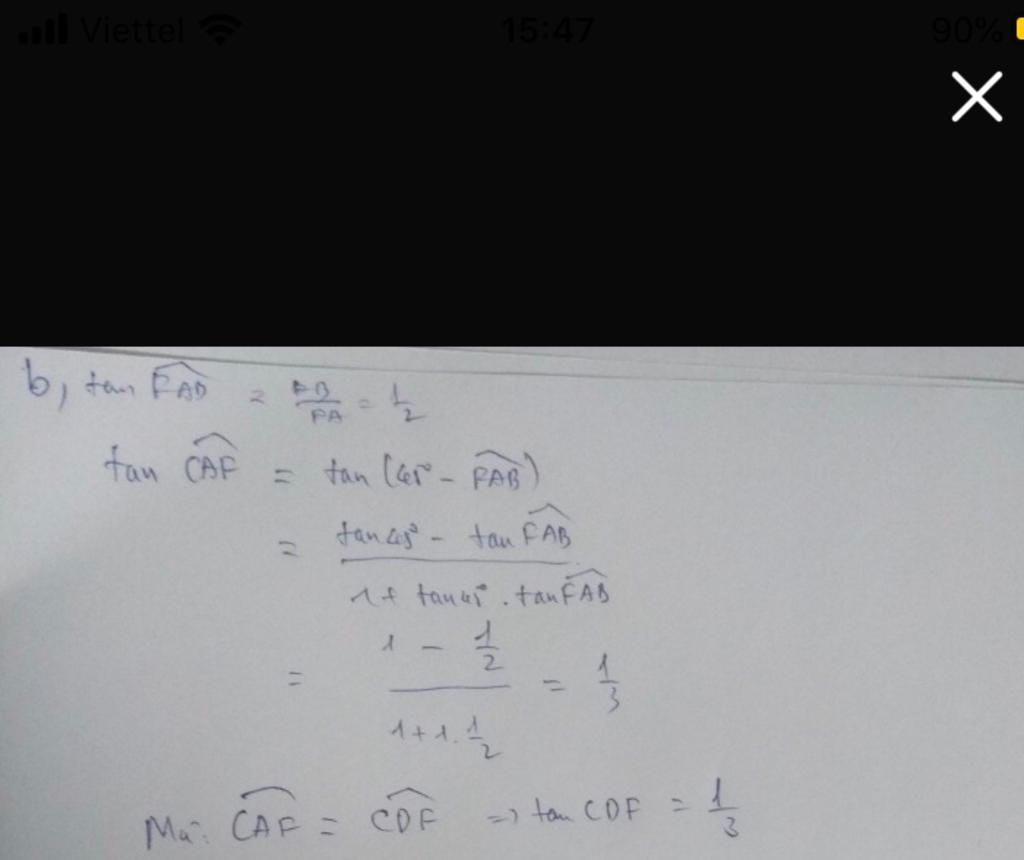 Viettel 15:47 90%
b, tan FAB = FB/FA = 1/2
tan CAF = tan (45° - FAB)
= (tan 45° - tan FAB) / (1 + tan 45° . tan FAB)
= (1 - 1/2) / (1 + 1. 1/2) = 1/3
Mà: CAF = CDF => tan CDF = 1/3